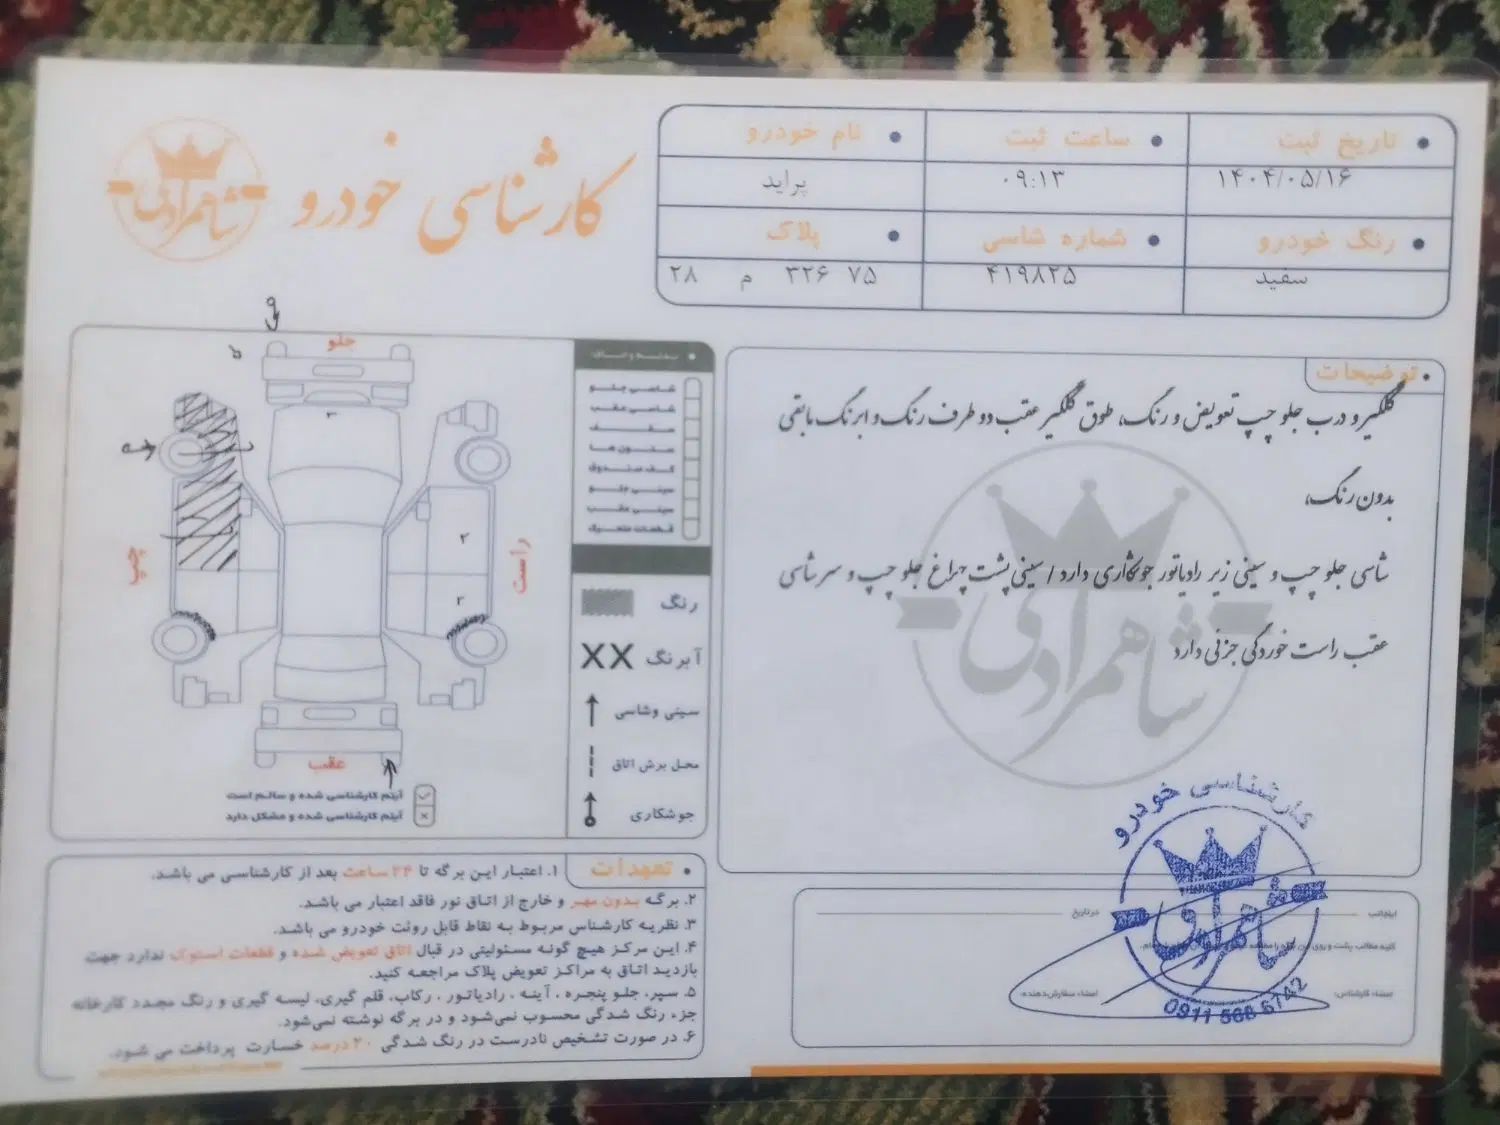 کارشناسی خودرو
شاهمرادی
تاریخ ثبت
ساعت ثبت
نام خودرو
۱۴۰۴/۰۵/۱۶
۰۹:۱۳
پراید
رنگ خودرو
شماره شاسی
پلاک
سفید
۴۱۹۸۲۵
۷۵ ۳۲۶ م ۲۸
توضیحات
گلگیر و درب جلو چپ تعویض و رنگ، طوق گلگیر عقب دو طرف رنگ و ابرنگ مابقی
بدون رنگ،
شاسی جلو چپ و سینی زیر رادیاتور جوشکاری دارد / سینی پشت چراغ جلو چپ و سر شاسی
عقب راست خوردگی جزئی دارد
شاهمرادی
جلو
چپ
راست
عقب
۲
۲
آیتم کارشناسی شده و سالم است
آیتم کارشناسی شده و مشکل دارد
شاسی جلو
شاسی عقب
سقف
ستون ها
کف صندوق
سینی جلو
سینی عقب
قطعات متحرک
رنگ
آبرنگ XX
سینی و شاسی
محل برش اتاق
جوشکاری
تعهدات
۱. اعتبار این برگه تا ۲۴ ساعت بعد از کارشناسی می باشد.
۲. برگه بدون مهر و خارج از اتاق نور فاقد اعتبار می باشد.
۳. نظریه کارشناس مربوط به نقاط قابل روئت خودرو می باشد.
۴. این مرکز هیچ گونه مسئولیتی در قبال اتاق تعویض شده و قطعات استوک ندارد جهت
بازدید اتاق به مراکز تعویض پلاک مراجعه کنید.
۵. سپر، جلو پنجره ، آینه ، رادیاتور ، رکاب، قلم گیری، لیسه گیری و رنگ مجدد کارخانه
جزء رنگ شدگی محسوب نمی‌شود و در برگه نوشته نمی‌شود.
۶. در صورت تشخیص نادرست در رنگ شدگی ۲۰ درصد خسارت پرداخت می شود.
اینجانب
در تاریخ
امضاء کارشناس:
امضاء سفارش‌دهنده:
کارشناسی خودرو
شاهمرادی
0911 568 6742